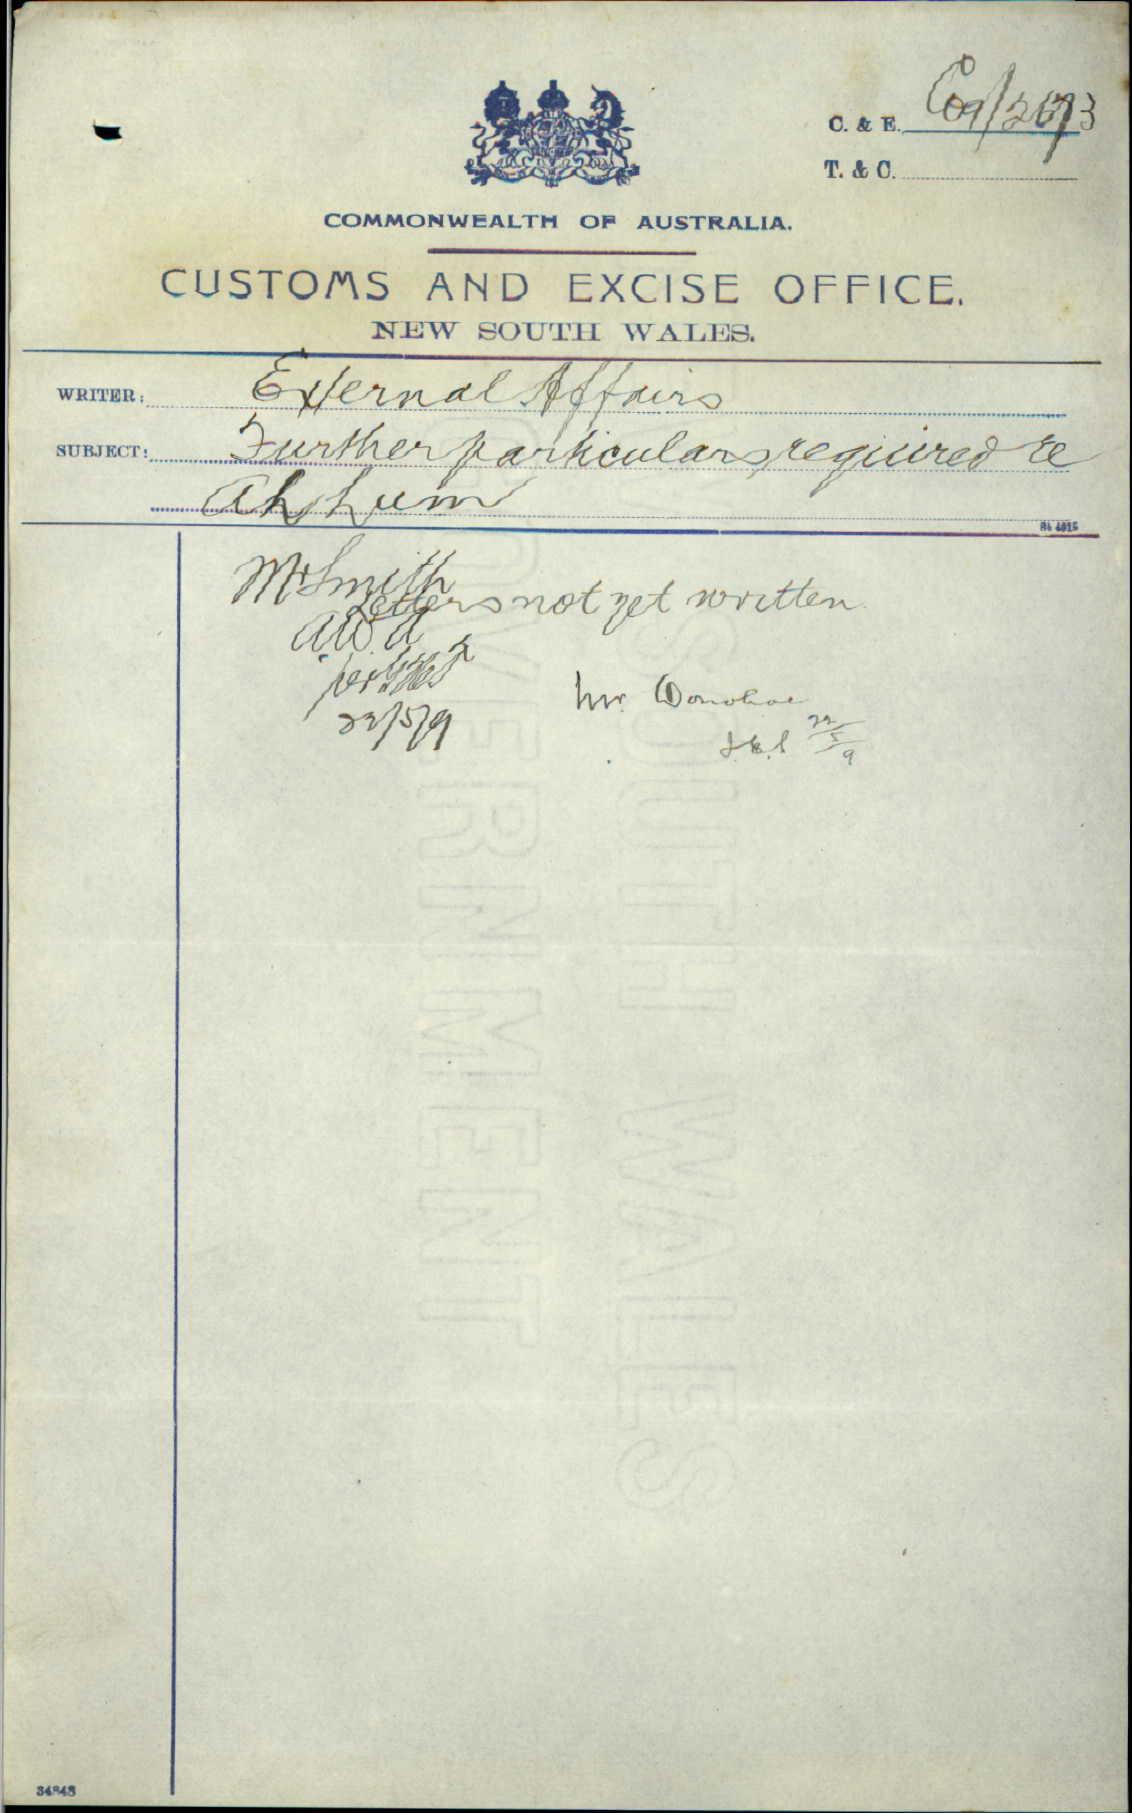 C. & E. C09/2673
T. & C.
COMMONWEALTH OF AUSTRALIA.
CUSTOMS AND EXCISE OFFICE.
NEW SOUTH WALES.
WRITER: External Affairs
SUBJECT: Further particulars required re
Ah Lum
Mr Smith
Letters not yet written
A.W.D.
per
22/5/9
Mr. Donohoe
J.E.S 22/5/9
SOUTH WALES
GOVERNMENT
34848